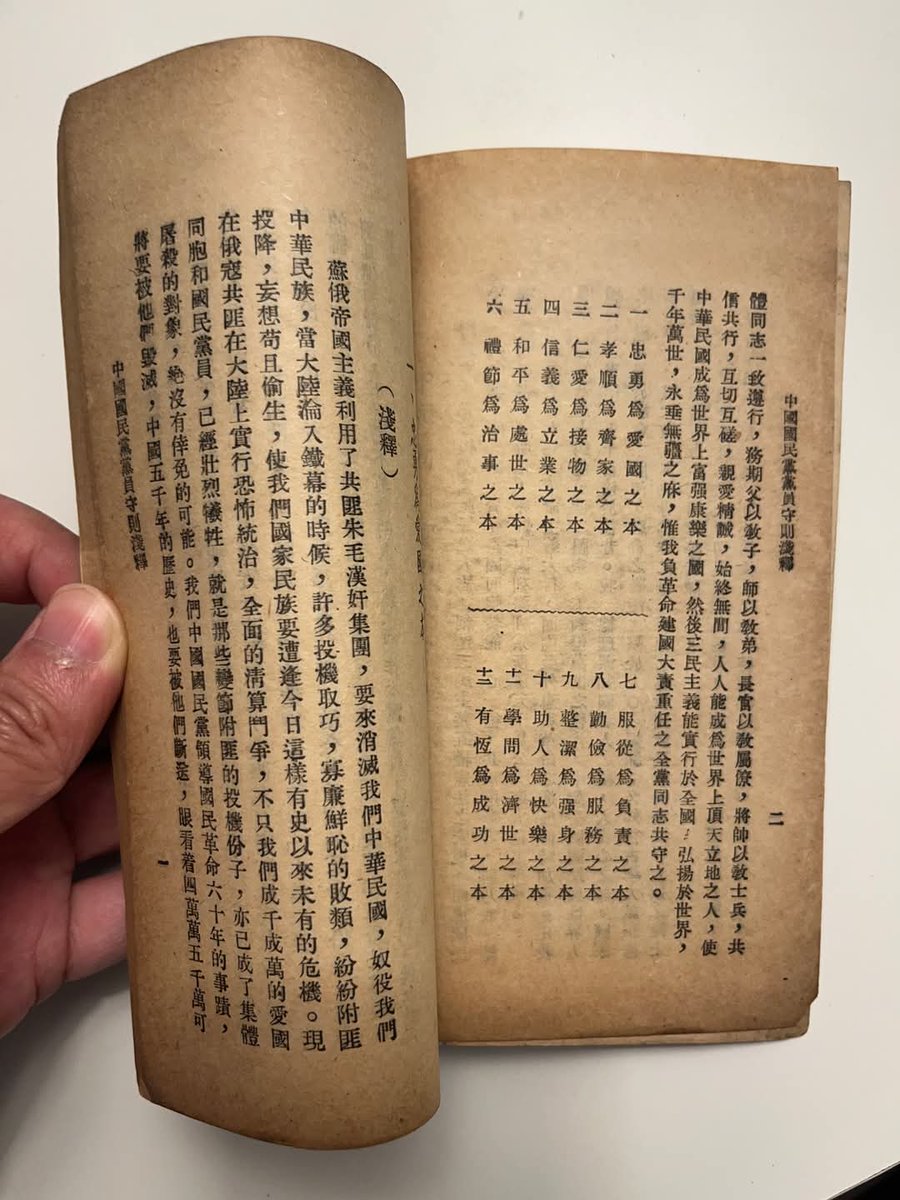 中國國民黨黨員守則淺釋
二
體同志一致遵行，務期父以敎子，師以敎弟，長官以敎屬僚，將帥以敎士兵，共
信共行，互切互磋，親愛精誠，始終無間，人人能成爲世界上頂天立地之人，使
中華民國成爲世界上富强康樂之國，然後三民主義能實行於全國，弘揚於世界，
千年萬世，永垂無疆之庥，惟我負革命建國大責重任之全黨同志共守之。
一　忠勇爲愛國之本
二　孝順爲齊家之本
三　仁愛爲接物之本
四　信義爲立業之本
五　和平爲處世之本
六　禮節爲治事之本
七　服從爲負責之本
八　勤儉爲服務之本
九　整潔爲强身之本
十　助人爲快樂之本
十一　學問爲濟世之本
十二　有恆爲成功之本
（淺釋）
蘇俄帝國主義利用了共匪朱毛漢奸集團，要來消滅我們中華民國，奴役我們
中華民族，當大陸淪入鐵幕的時候，許多投機取巧，寡廉鮮恥的敗類，紛紛附匪
投降，妄想苟且偷生，使我們國家民族要遭逢今日這樣有史以來未有的危機。現
在俄寇共匪在大陸上實行恐怖統治，全面的清算鬥爭，不只我們成千成萬的愛國
同胞和國民黨員，已經壯烈犧牲，就是那些變節附匪的投機份子，亦已成了集體
屠殺的對象，絶沒有倖免的可能。我們中國國民黨領導國民革命六十年的事蹟，
將要被他們毀滅，中國五千年的歷史，也要被他們斷送，眼看着四萬萬五千萬可
中國國民黨黨員守則淺釋
一